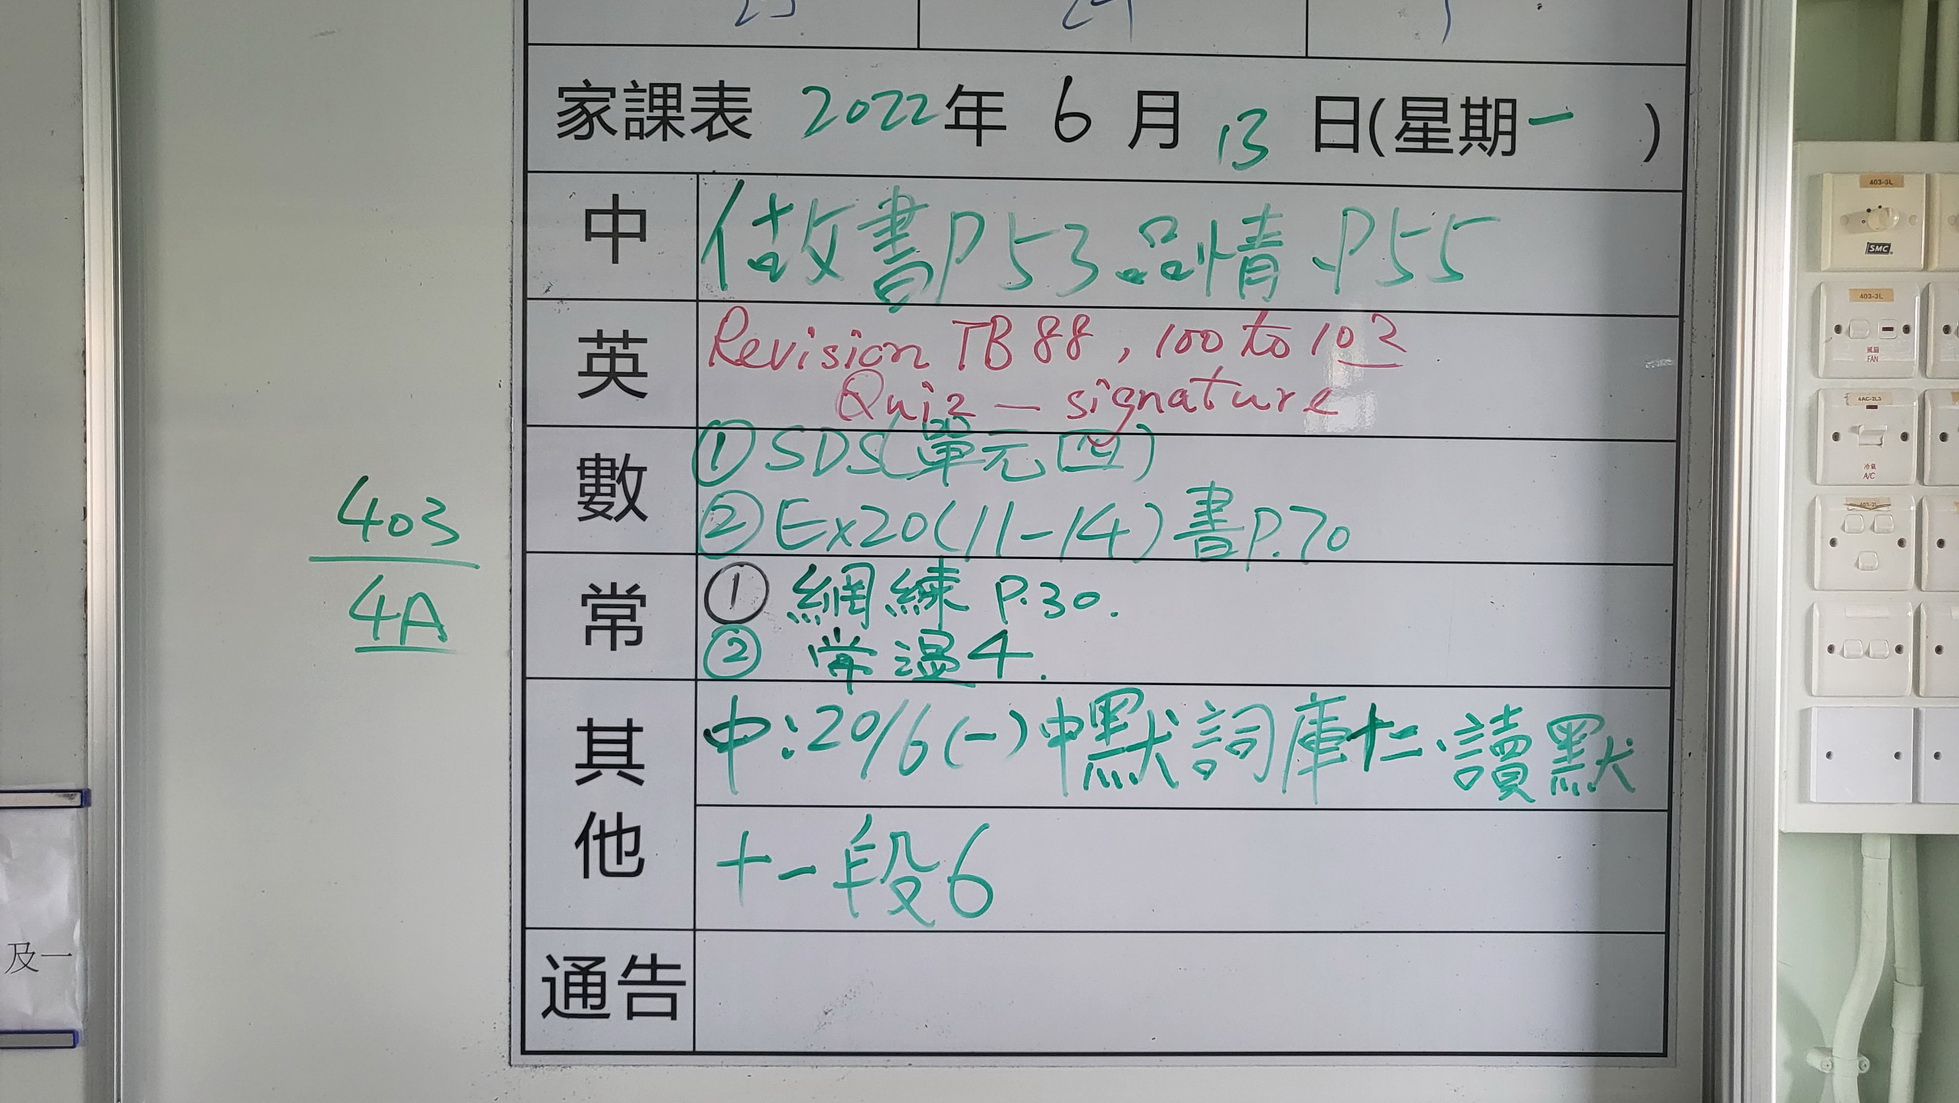 家課表 2022年 6 月 13 日(星期一 )
中 做書P53.品情.P55
英 Revision TB 88, 100 to 102
Quiz — signature
數 ①SDS(單元四)
②Ex20(11-14)書P.70
常 ① 網練 P.30.
② 常溫4.
其他 中:20/6(一)中默詞庫十二.讀默
十一段6
通告
403
4A
及一
403-3L
SMC
403-3L
風扇
FAN
冷氣
A/C